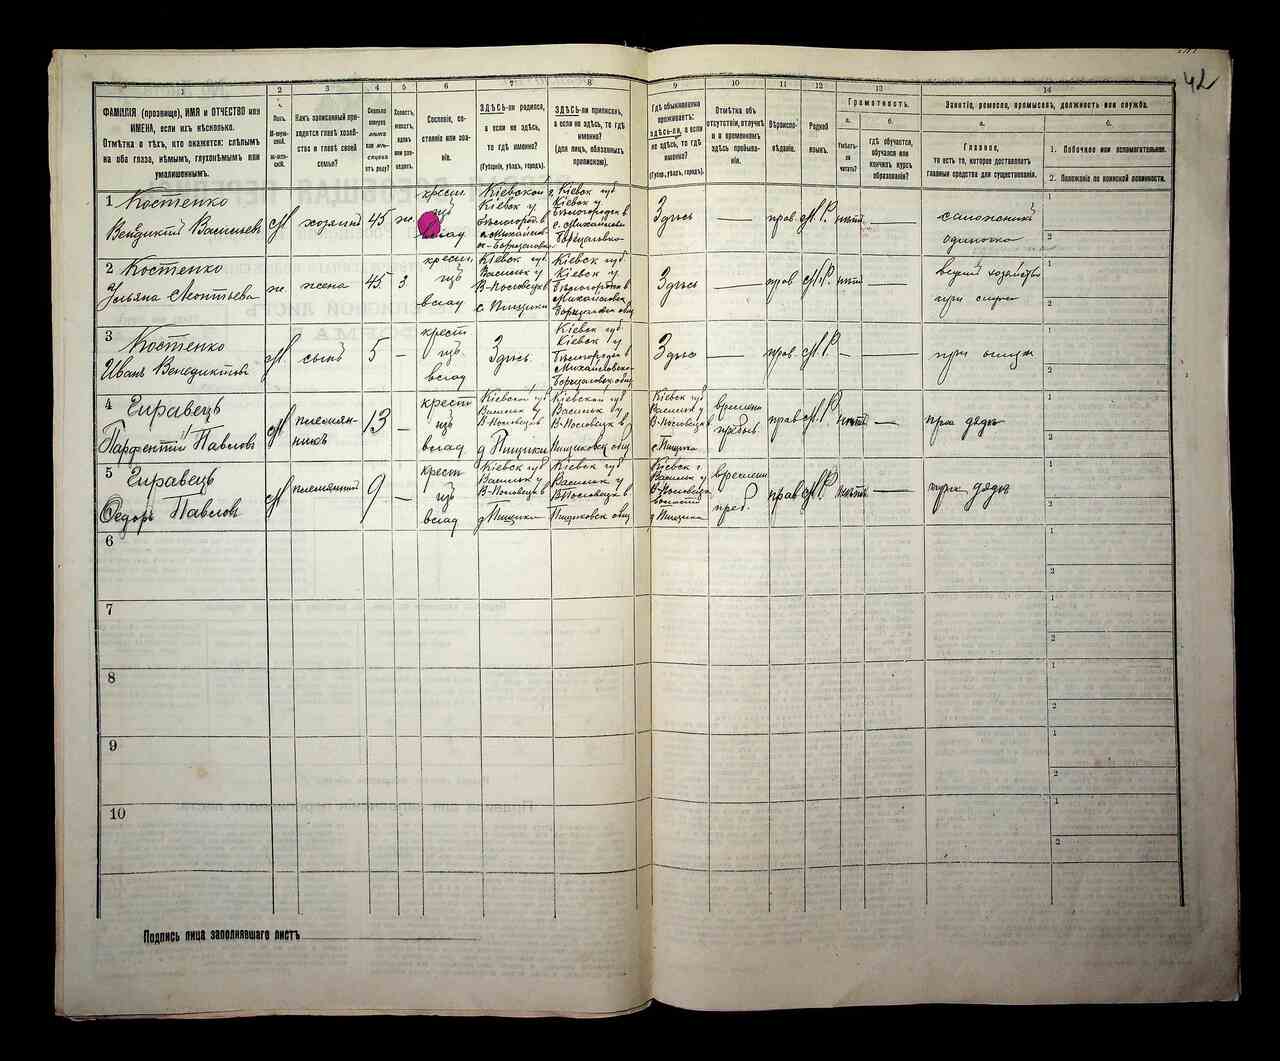 42
1
2
3
4
5
6
7
8
9
10
11
12
13
14
ФАМИЛІЯ (прозвище), ИМЯ и ОТЧЕСТВО или
ИМЕНА, если ихъ нѣсколько.
Отмѣтка о тѣхъ, кто окажется: слѣпымъ
на оба глаза, нѣмымъ, глухонѣмымъ или
умалишеннымъ.
Полъ.
М-муж-
ской.
Ж-жен-
скій.
Какъ записанный при-
ходится главѣ хозяй-
ства и главѣ своей
семьи?
Сколько
минуло
лѣтъ
или мѣ-
сяцевъ
отъ роду?
Холостъ,
женатъ,
вдовъ
или раз-
веденъ.
Сословіе, со-
стояніе или зва-
ніе.
ЗДѢСЬ-ли родился,
а если не здѣсь,
то гдѣ именно?
(Губернія, уѣздъ, городъ).
ЗДѢСЬ-ли приписанъ,
а если не здѣсь, то гдѣ
именно?
(для лицъ, обязанныхъ
припискою).
Гдѣ обыкновенно
проживаетъ:
здѣсь-ли, а если
не здѣсь, то гдѣ
именно?
(Губерн., уѣздъ, городъ).
Отмѣтка объ
отсутствіи, отлучкѣ
и о временномъ
здѣсь пребыва-
ніи.
Вѣроиспо-
вѣданіе.
Родной
языкъ.
Грамотность.
а.
Умѣетъ-
ли
читать?
б.
гдѣ обучается,
обучался или
кончилъ курсъ
образованія?
Занятіе, ремесло, промыселъ, должность или служба.
а.
Главное,
то есть то, которое доставляетъ
главныя средства для существованія.
б.
1. Побочное или вспомогательное.
2. Положеніе по воинской повинности.
1 Костенко
Венедиктъ Васильевъ М хозяинъ 45 ж. крест. изъ
Кіевской г.
Кіевск у
Кіевск губ
Кіевск у
Бѣлогородск в
с. Михайловск
Борщаговка
Здѣсь — прав. М.Р. нѣтъ —
сапожникъ
одиночка
1
2
2 Костенко
Ульяна Леонтьева ж. жена 45 з. крест. изъ
влад
Кіевск губ
Васильк у
В-Половецк в
с Пищики
Кіевск губ
Кіевск у
Бѣлогородск в
Михайловск
Борщаговск общ
Здѣсь — прав М.Р. нѣтъ —
ведетъ хозяйство
при мужѣ
1
2
3 Костенко
Иванъ Венедиктовъ М сынъ 5 — крест
изъ
влад
Здѣсь.
Кіевск губ
Кіевск у
Бѣлогородск в
Михайловско-
Борщаговск общ
Здѣсь — прав. М.Р. — —
при отцѣ
1
2
4
Парфентій Павловъ М племян-
никъ 13 — крест
изъ
влад
Кіевской губ
Васильк у
В-Половецк
д Пищики
Кіевской губ
Васильк у
В-Половецк в
Пищиковск общ
Кіевск г
Васильк у
В-Половецк в
с Пищики
временно
пребыв прав М.Р. нѣтъ —
при дядѣ
1
2
5
Федоръ Павловъ М племянникъ 9 — крест
изъ
влад
Кіевск губ
Васильк у
В-Половецк в
д Пищики
Кіевск губ
Васильк у
В-Половецк в
Пищиковск общ
Кіевск г.
Васильк у
В-Половецк
д Пищики
временно
преб. прав М.Р. нѣтъ —
при дядѣ
1
2
6
1
2
7
1
2
8
1
2
9
1
2
10
1
2
Подпись лица заполнявшаго листъ